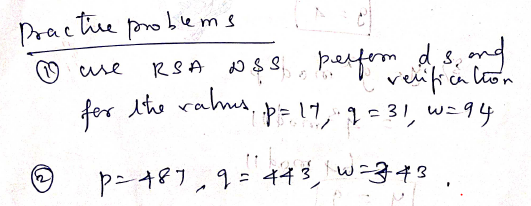 Practice problems
① use RSA DSS, perform d s, and
verification
for the values. p = 17, q = 31, w = 94
② p = 487, q = 443, w = 343.